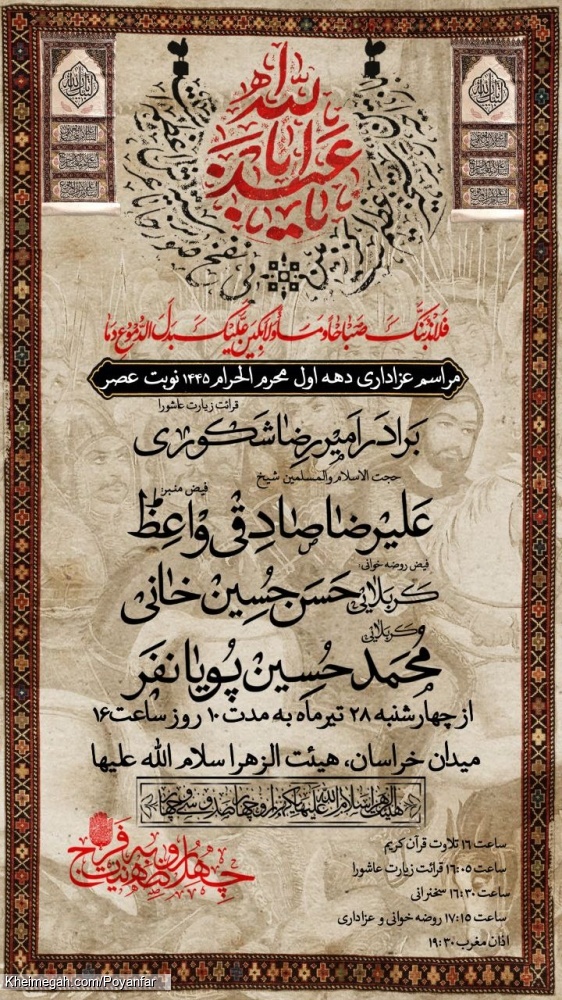 یا اباعبدالله
فلاندبنك صباحا و مساء و لابکین علیك بدل الدموع دما
مراسم عزاداری دهه اول محرم الحرام ۱۴۴۵ نوبت عصر
قرائت زیارت عاشورا
برادر امیررضا شکوری
حجت الاسلام والمسلمین شیخ
فیض منبر:
علیرضا صادقی واعظ
فیض روضه خوانی:
کربلایی حسن حسین خانی
وکربلایی
محمد حسین پویانفر
از چهارشنبه ۲۸ تیرماه به مدت ۱۰ روز ساعت ۱۶
میدان خراسان، هیئت الزهرا سلام الله علیها
هیئت الزهرا سلام الله علیها یکهزار و چهارصد و سی و چهار
ساعت ۱۶ تلاوت قرآن کریم
ساعت ۱۶:۰۵ قرائت زیارت عاشورا
ساعت ۱۶:۳۰ سخنرانی
ساعت ۱۷:۱۵ روضه خوانی و عزاداری
اذان مغرب ۱۹:۳۰
Kheimegah.com/Poyanfar